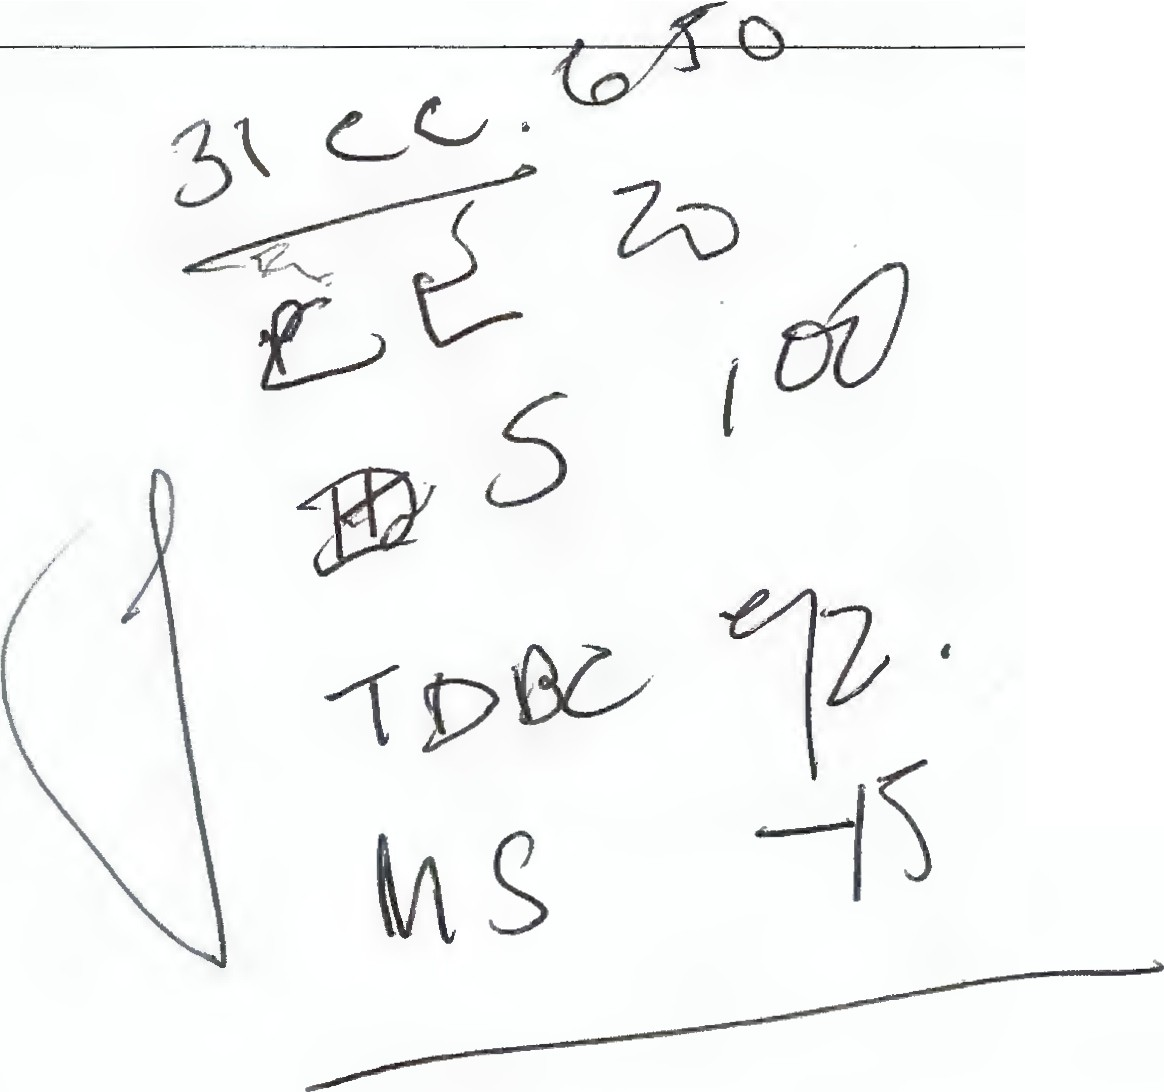 31 CC. 650
E 20
S 100
TDBC 92.
MS -15